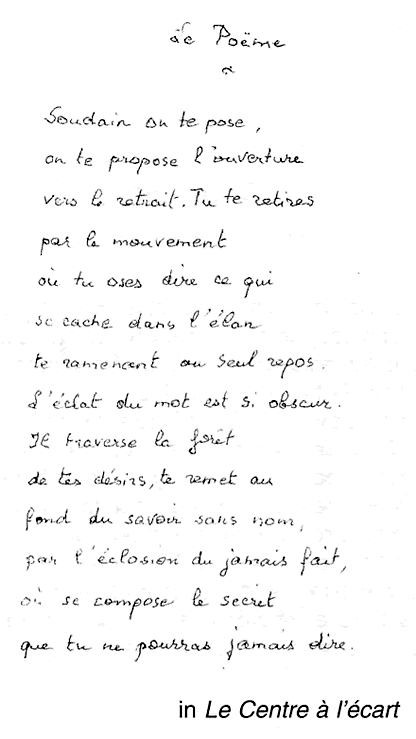 Le Poëme
~
Soudain on te pose,
on te propose l'ouverture
vers le retrait. Tu te retires
par le mouvement
où tu oses dire ce qui
se cache dans l'élan
te ramenant au seul repos.
L'éclat du mot est si obscur.
Il traverse la forêt
de tes désirs, te remet au
fond du savoir sans nom,
par l'éclosion du jamais fait,
où se compose le secret
que tu ne pourras jamais dire.
in Le Centre à l'écart